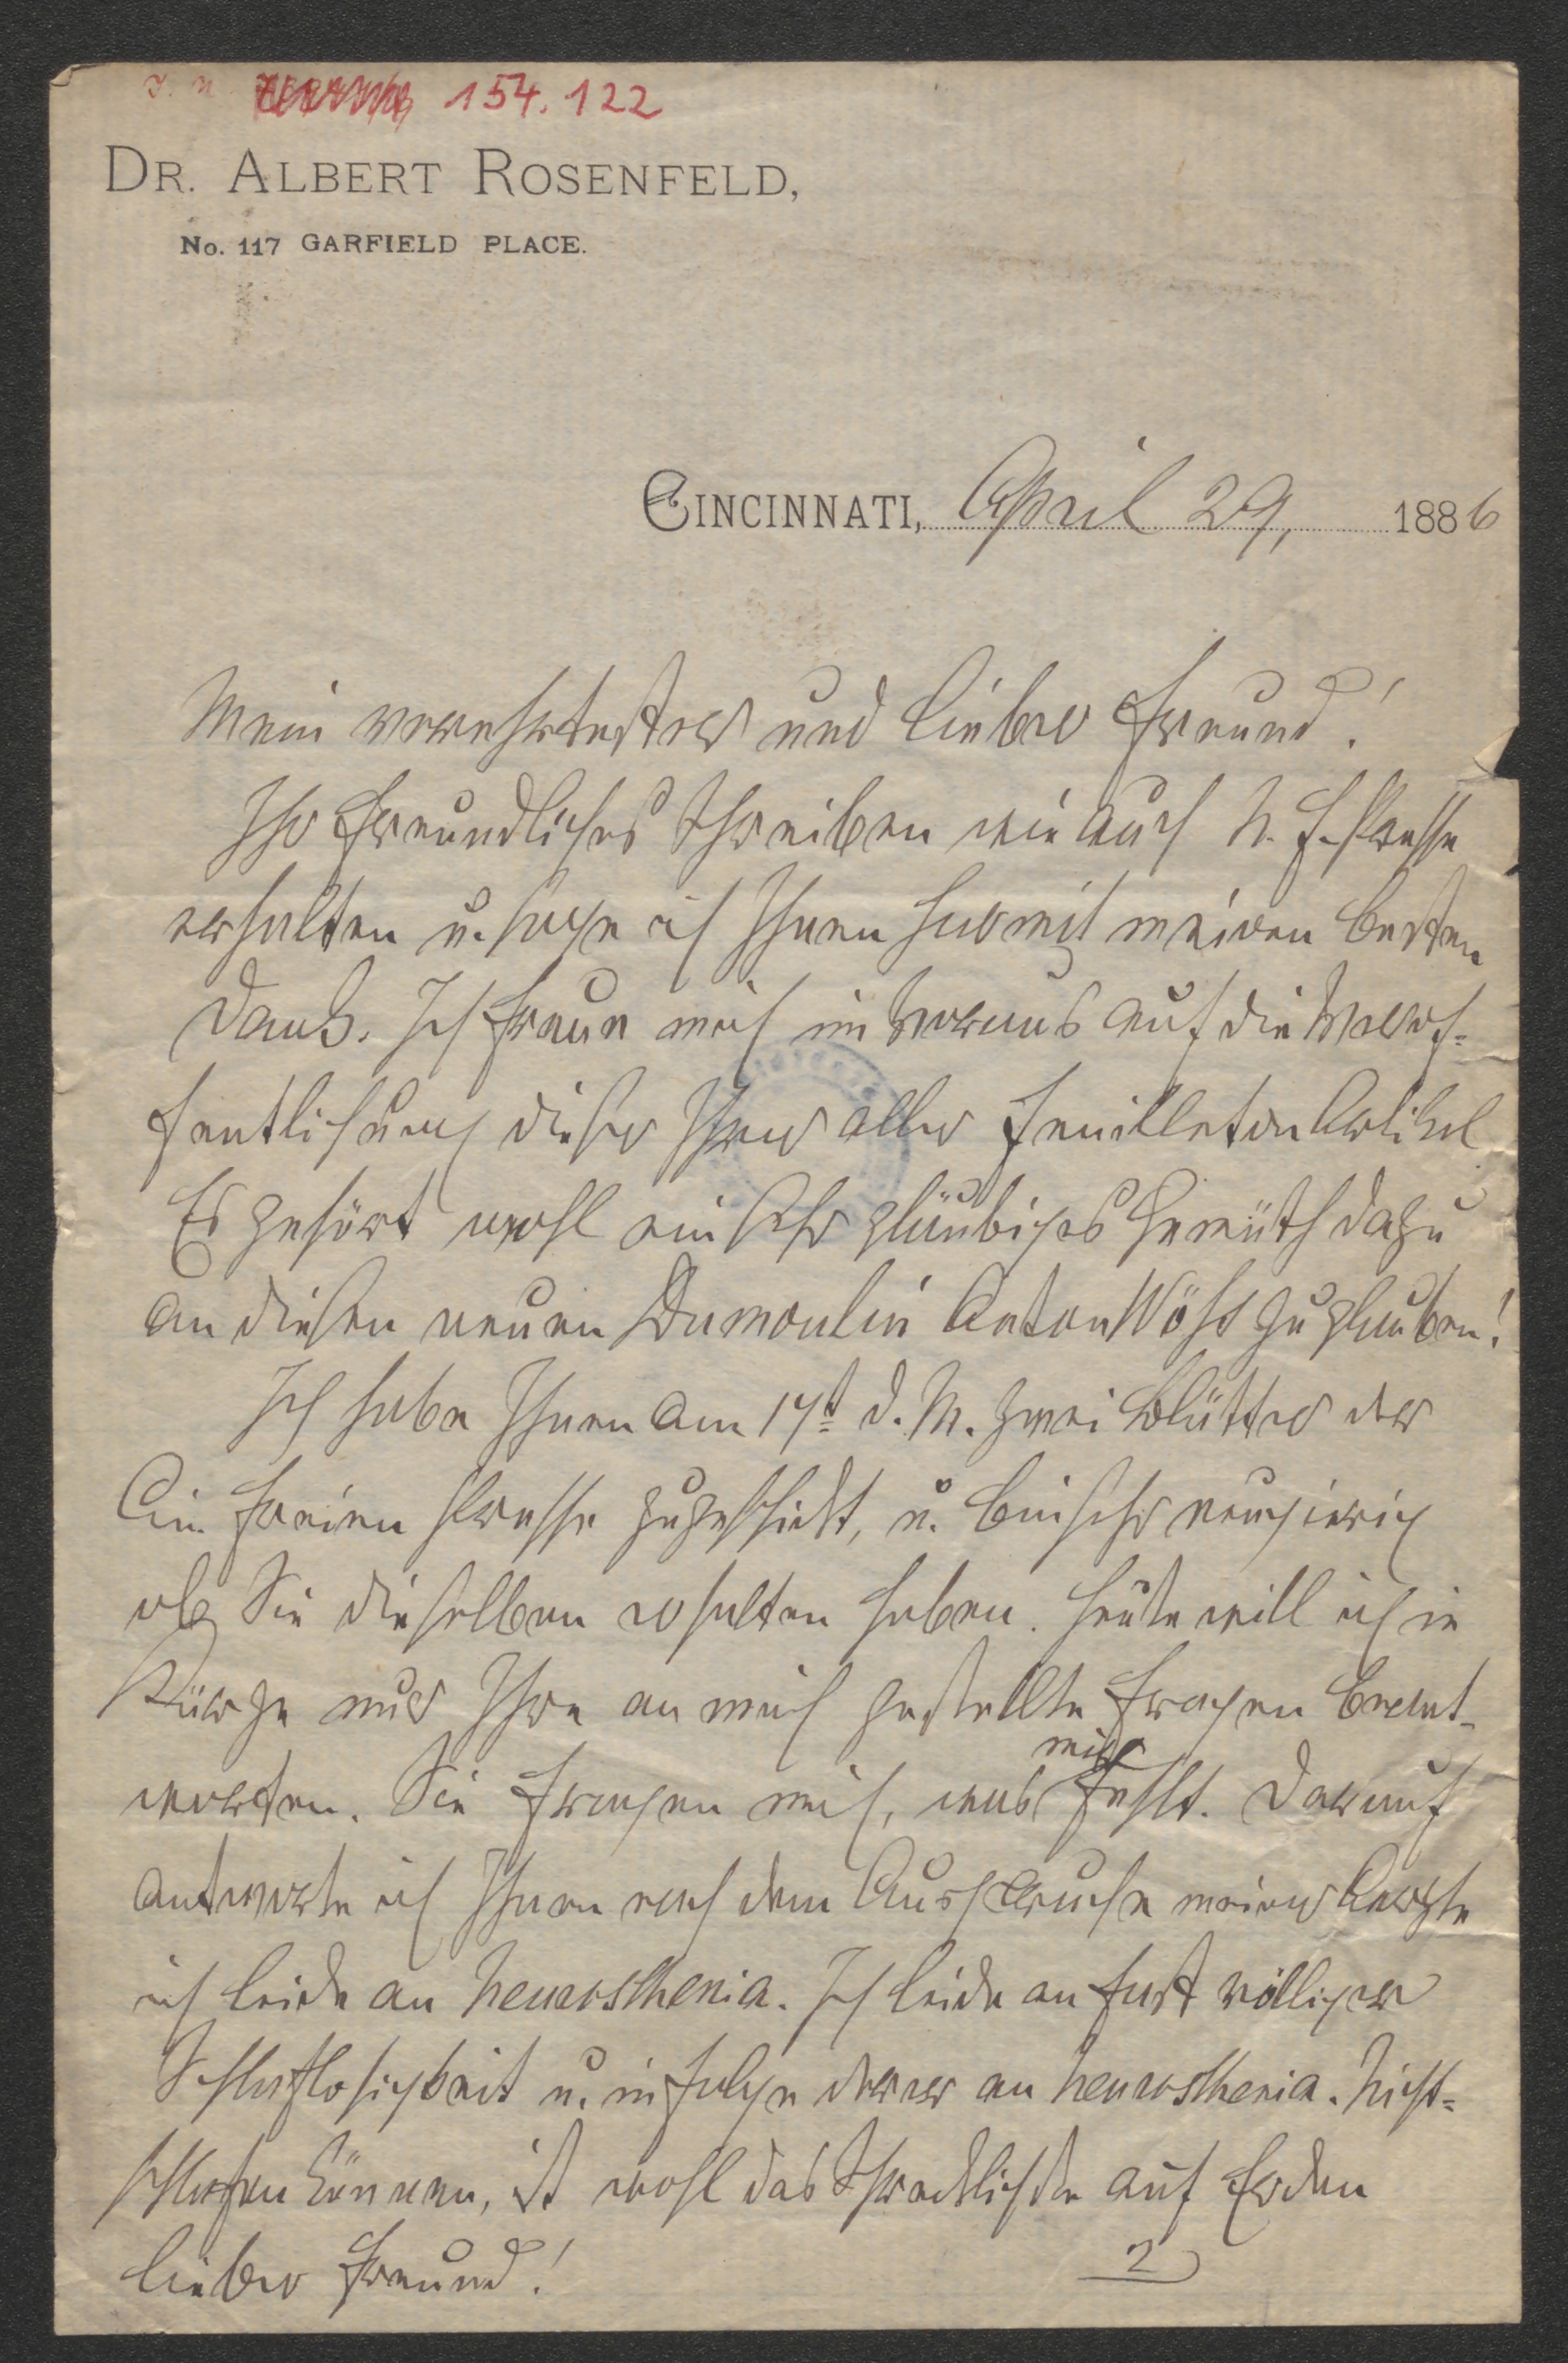 J. N. 154.122
DR. ALBERT ROSENFELD,
No. 117 GARFIELD PLACE.
CINCINNATI, April 29, 1886
Mein verehrtester und lieber Freund!
Ihr freundliches Schreiben wie auch N. f. Presse
erhalten u. sage ich Ihnen hiermit meinen besten
Dank. Ich freue mich im Voraus auf die Veröf-
fentlichung dieser Ihrer aller Feuilleton Artikel
Es gehört wohl ein sehr gläubiges Gemüth dazu
an diesen neuen Dumoulin Anton zu glauben!
Ich habe Ihnen am 17t d. M. zwei Blätter der
Cin. freien Presse zugeschickt, u. bin sehr neugierig
ob Sie dieselben erhalten haben. Heute will ich in
Kürze nur Ihre an mich gestellte Fragen beant-
worten. Sie fragen mich, was mir fehlt. Darauf
antworte ich Ihnen nach dem Ausspruche meiner Aerzte
ich leide an Neurosthenia. Ich leide an fast völliger
Schlaflosigkeit u. in folge derer an Neurosthenia. Nicht-
schlafen können, ist wohl das Schrecklichste auf Erden
lieber Freund!
2